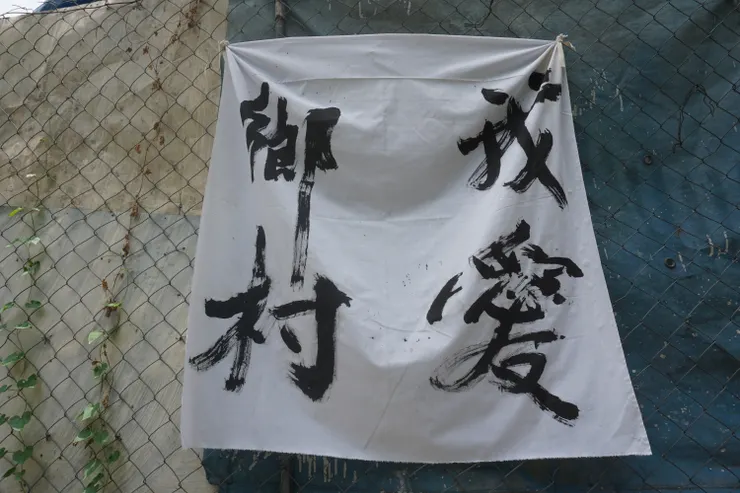 我愛
鄉村